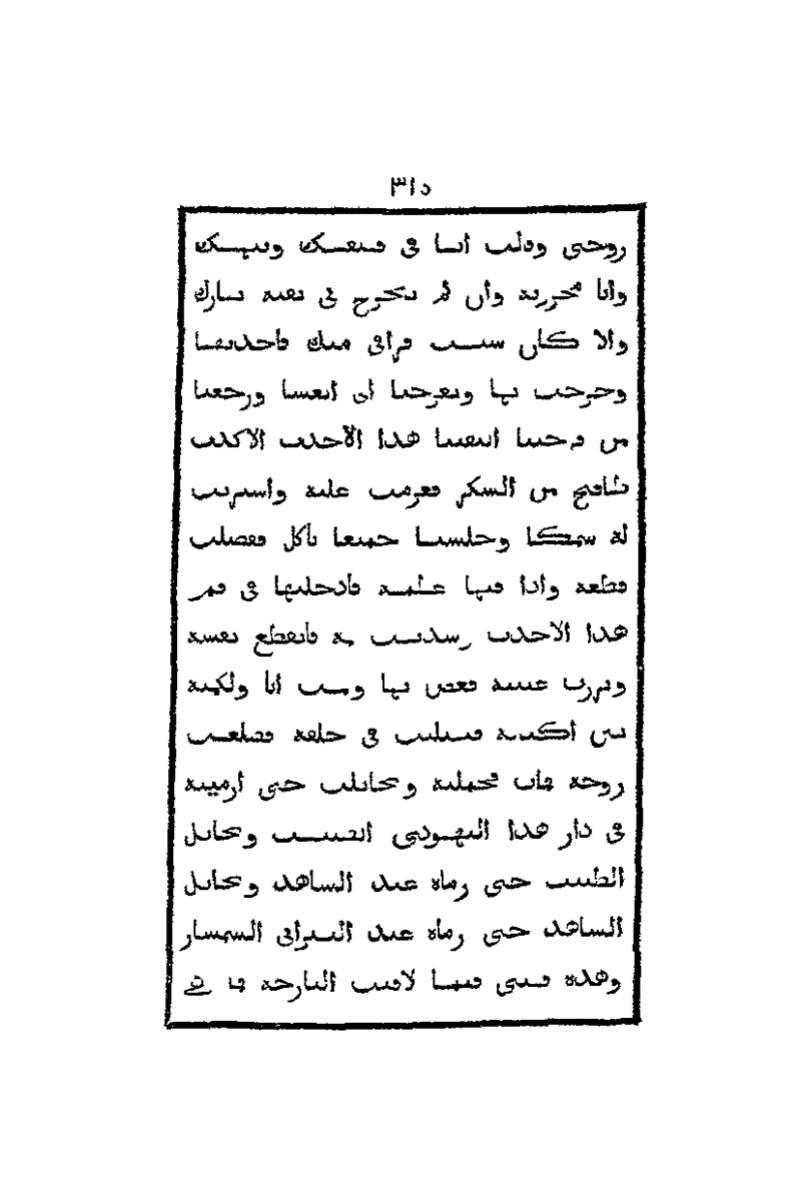 ٣١٥
روحى وقلت انسا فى
وانا محزونة وان لم تخرج فى بقية نهارك
والا كان سبب فراقى منك فاخذتها
وخرجت بها وتفرجنا الى العشا ورجعنا
من فرجتنا التقينا هذا الاحدب الاكذب
طافح من السكر فعزمت عليه واشتريت
له سمكا وجلسنا جميعا ناكل ففصلت
قطعة واذا فيها عظمة فادخلتها فى فم
هذا الاحدب وسديت به فانقطع نفسه
وبرزت عينيه فغص بها وقمت انا ولكمته
بين اكتفه فنزلت فى حلقه فطلعت
روحه فمات فحملته وتحايلت حتى ارميته
فى دار هذا اليهودى الطبيب وتحايل
الطبيب حتى رماه عند الشاهد وتحايل
الشاهد حتى رماه عند النصرانى السمسار
وهذه قصتى فيما لاقيت البارحة